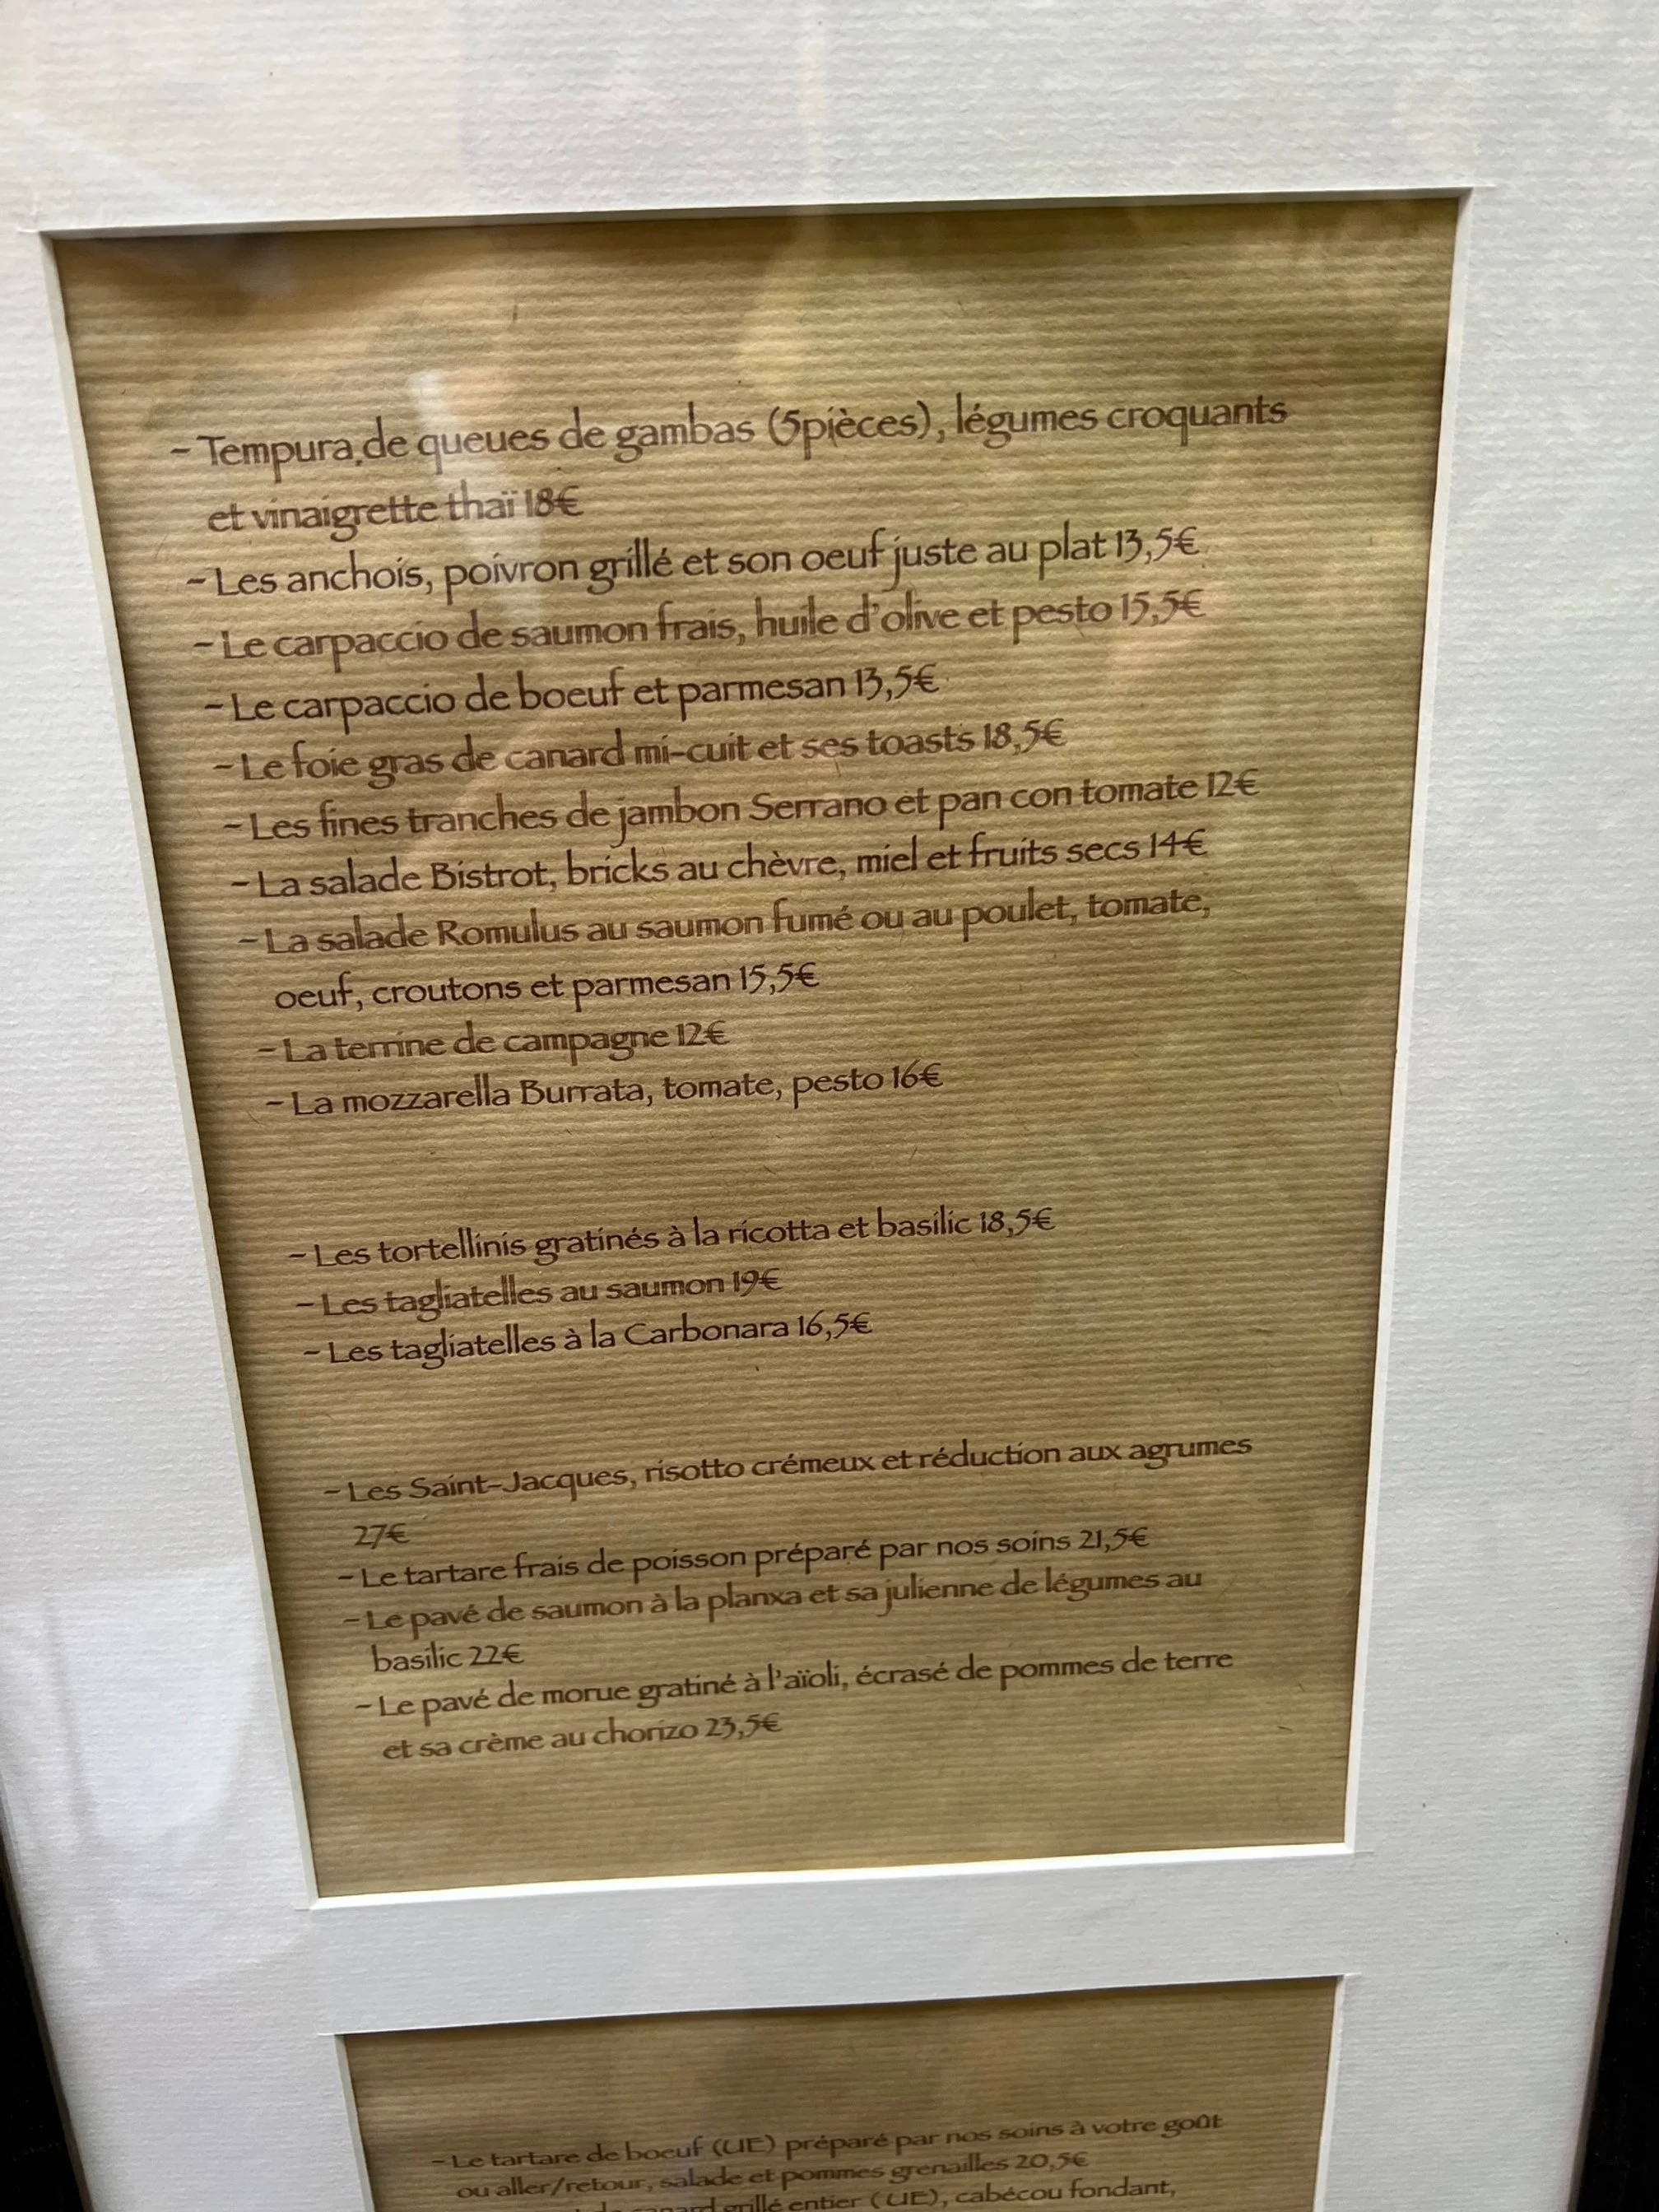 - Tempura de queues de gambas (5pièces), légumes croquants
et vinaigrette thaï 18€
- Les anchois, poivron grillé et son oeuf juste au plat 13,5€
- Le carpaccio de saumon frais, huile d'olive et pesto 15,5€
- Le carpaccio de boeuf et parmesan 13,5€
- Le foie gras de canard mi-cuit et ses toasts 18,5€
- Les fines tranches de jambon Serrano et pan con tomate 12€
- La salade Bistrot, bricks au chèvre, miel et fruits secs 14€
- La salade Romulus au saumon fumé ou au poulet, tomate,
oeuf, croutons et parmesan 15,5€
- La terrine de campagne 12€
- La mozzarella Burrata, tomate, pesto 16€
- Les tortellinis gratinés à la ricotta et basilic 18,5€
- Les tagliatelles au saumon 19€
- Les tagliatelles à la Carbonara 16,5€
- Les Saint-Jacques, risotto crémeux et réduction aux agrumes
27€
- Le tartare frais de poisson préparé par nos soins 21,5€
- Le pavé de saumon à la planxa et sa julienne de légumes au
basilic 22€
- Le pavé de morue gratiné à l'aïoli, écrasé de pommes de terre
et sa crème au chorizo 23,5€
- Le tartare de boeuf (UE) préparé par nos soins à votre goût
ou aller/retour, salade et pommes grenailles 20,5€
canard grillé entier (UE), cabécou fondant,